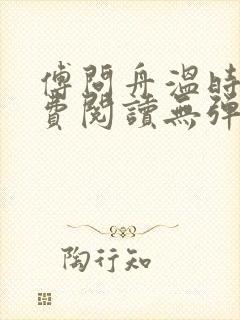 傅問舟溫時
費閱讀無彈
陶行知